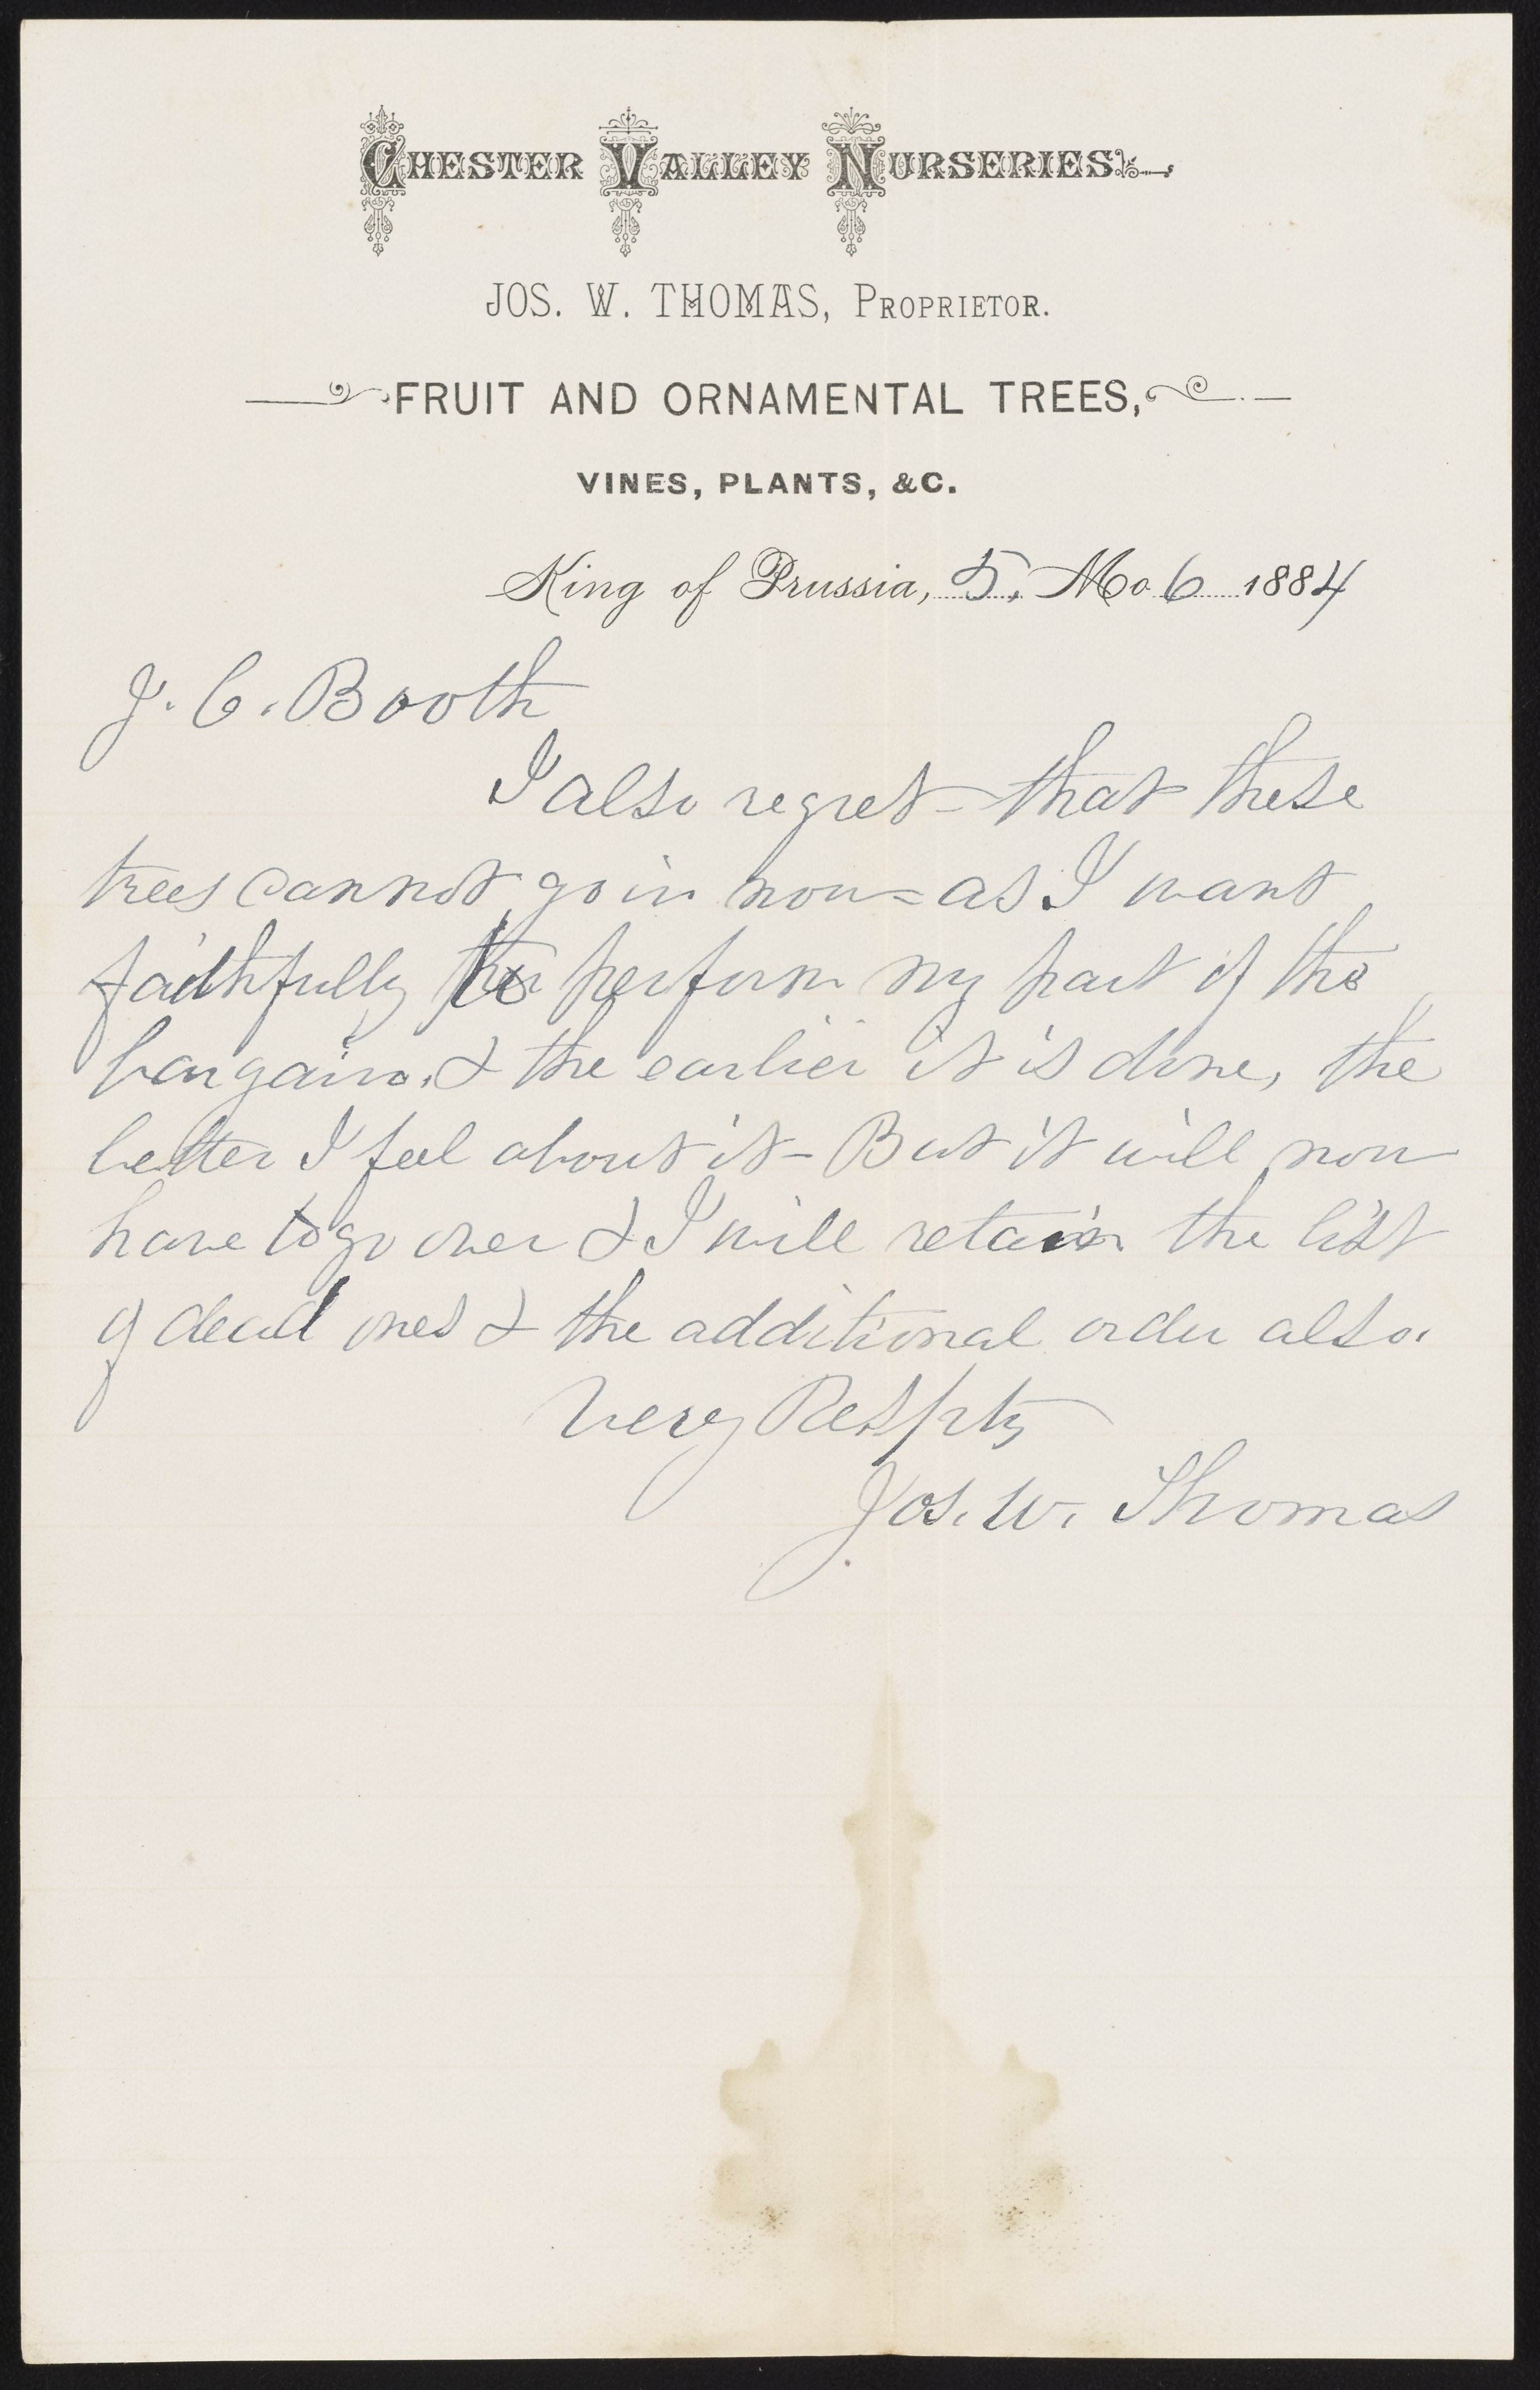 CHESTER VALLEY NURSERIES.
JOS. W. THOMAS, PROPRIETOR.
FRUIT AND ORNAMENTAL TREES,
VINES, PLANTS, &C.
King of Prussia, 5. Mo 6 1884
J. C. Booth
I also regret - that these
trees cannot go in now = as I want
faithfully to perform my part of the
bargain. & the earlier it is done, the
better I feel about it - But it will now
have to go over & I will retain the list
of dead ones & the additional order also.
Very Respty
Jos. W. Thomas